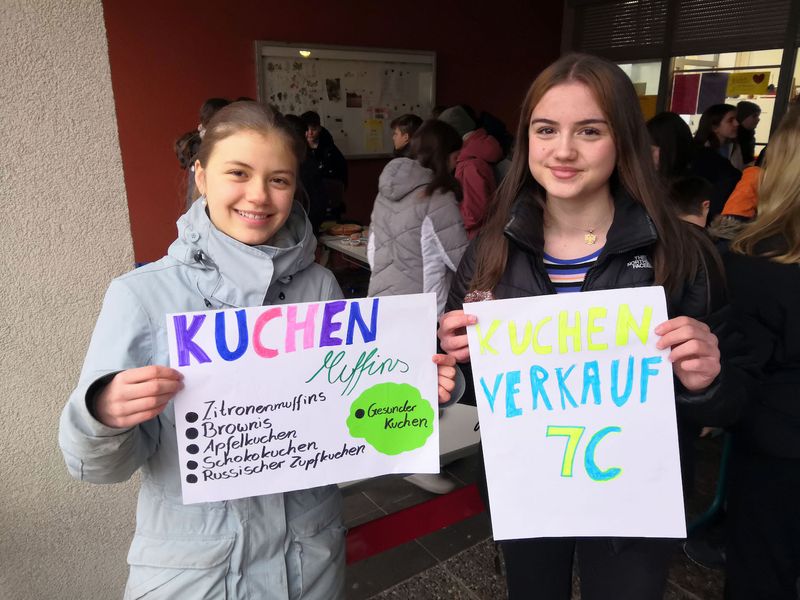 KUCHEN
Muffins
Zitronenmuffins
Brownis
Apfelkuchen
Schokokuchen
Russischer Zupfkuchen
Gesunder
Kuchen
KUCHEN
VERKAUF
7C
THE
NORTH
FACE